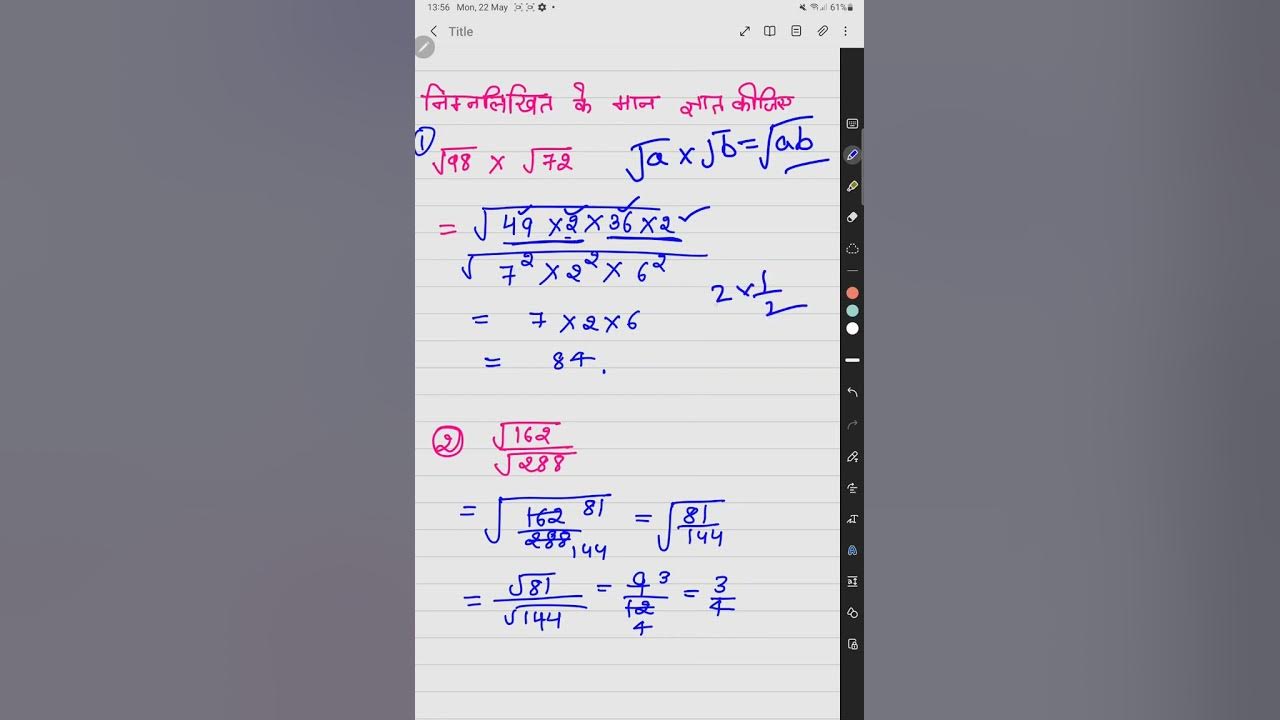 13:56 Mon, 22 May 61%
Title
निम्नलिखित के मान ज्ञात कीजिए
① √98 × √72 √a × √b = √ab
= √49 × 2 × 36 × 2
√7² × 2² × 6²
2 × 1/2
= 7 × 2 × 6
= 84.
② √162/√288
= √162/288 81 144 = √81/144
= √81/√144 = 9/12 3 4 = 3/4